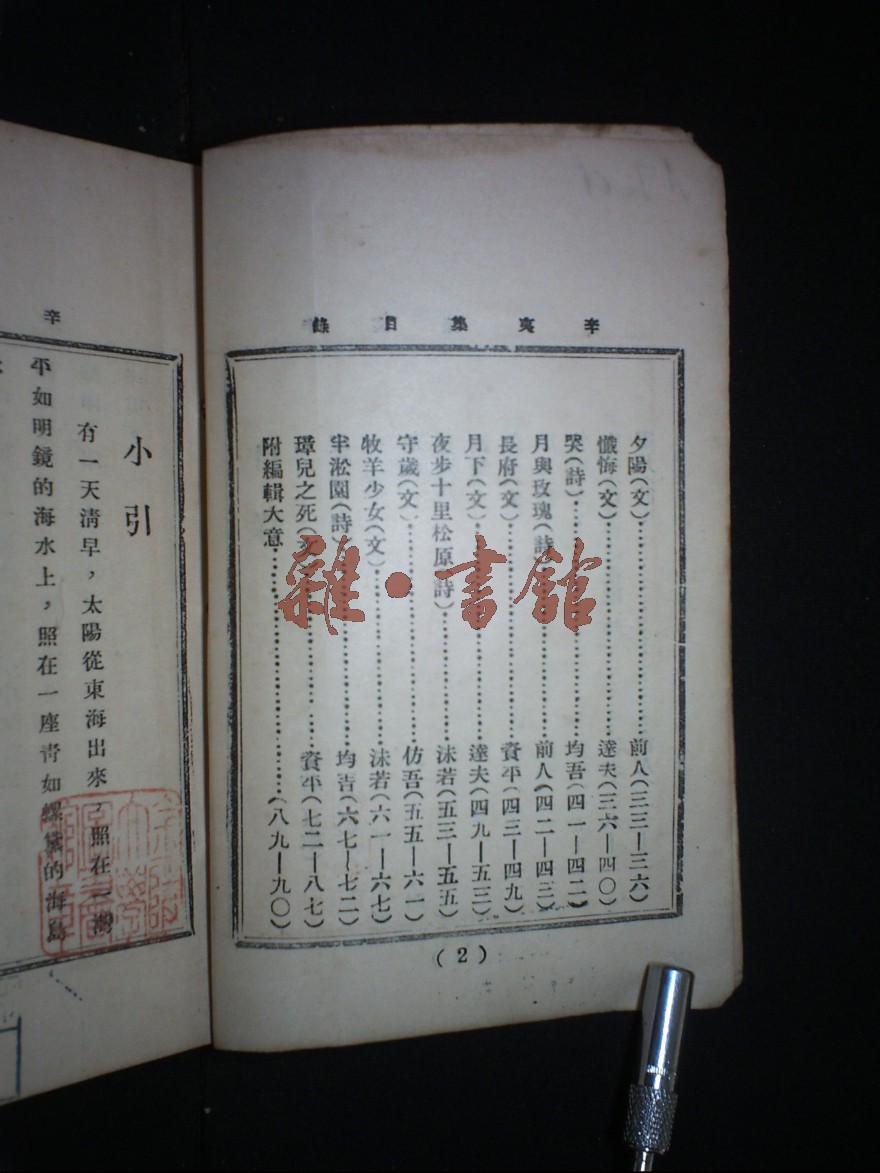 辛夷集目錄
夕陽（文）………前人（三三—三六）
懺悔（文）………達夫（三六—四〇）
哭（詩）………均吾（四一—四二）
月與玫瑰（詩）………前人（四二—四三）
長府（文）………資平（四三—四九）
月下（文）………達夫（四九—五三）
夜步十里松原（詩）………沫若（五三—五五）
守歲（文）………仿吾（五五—六一）
牧羊少女（文）………沫若（六一—六七）
半淞園（詩）………均吾（六七—七二）
璋兒之死（文）………資平（七二—八七）
附編輯大意………（八九—九〇）
(2)
雜·書館
辛
小引
有一天淸早，太陽從東海出來，照在一灣
平如明鏡的海水上，照在一座靑如螺黛的海島